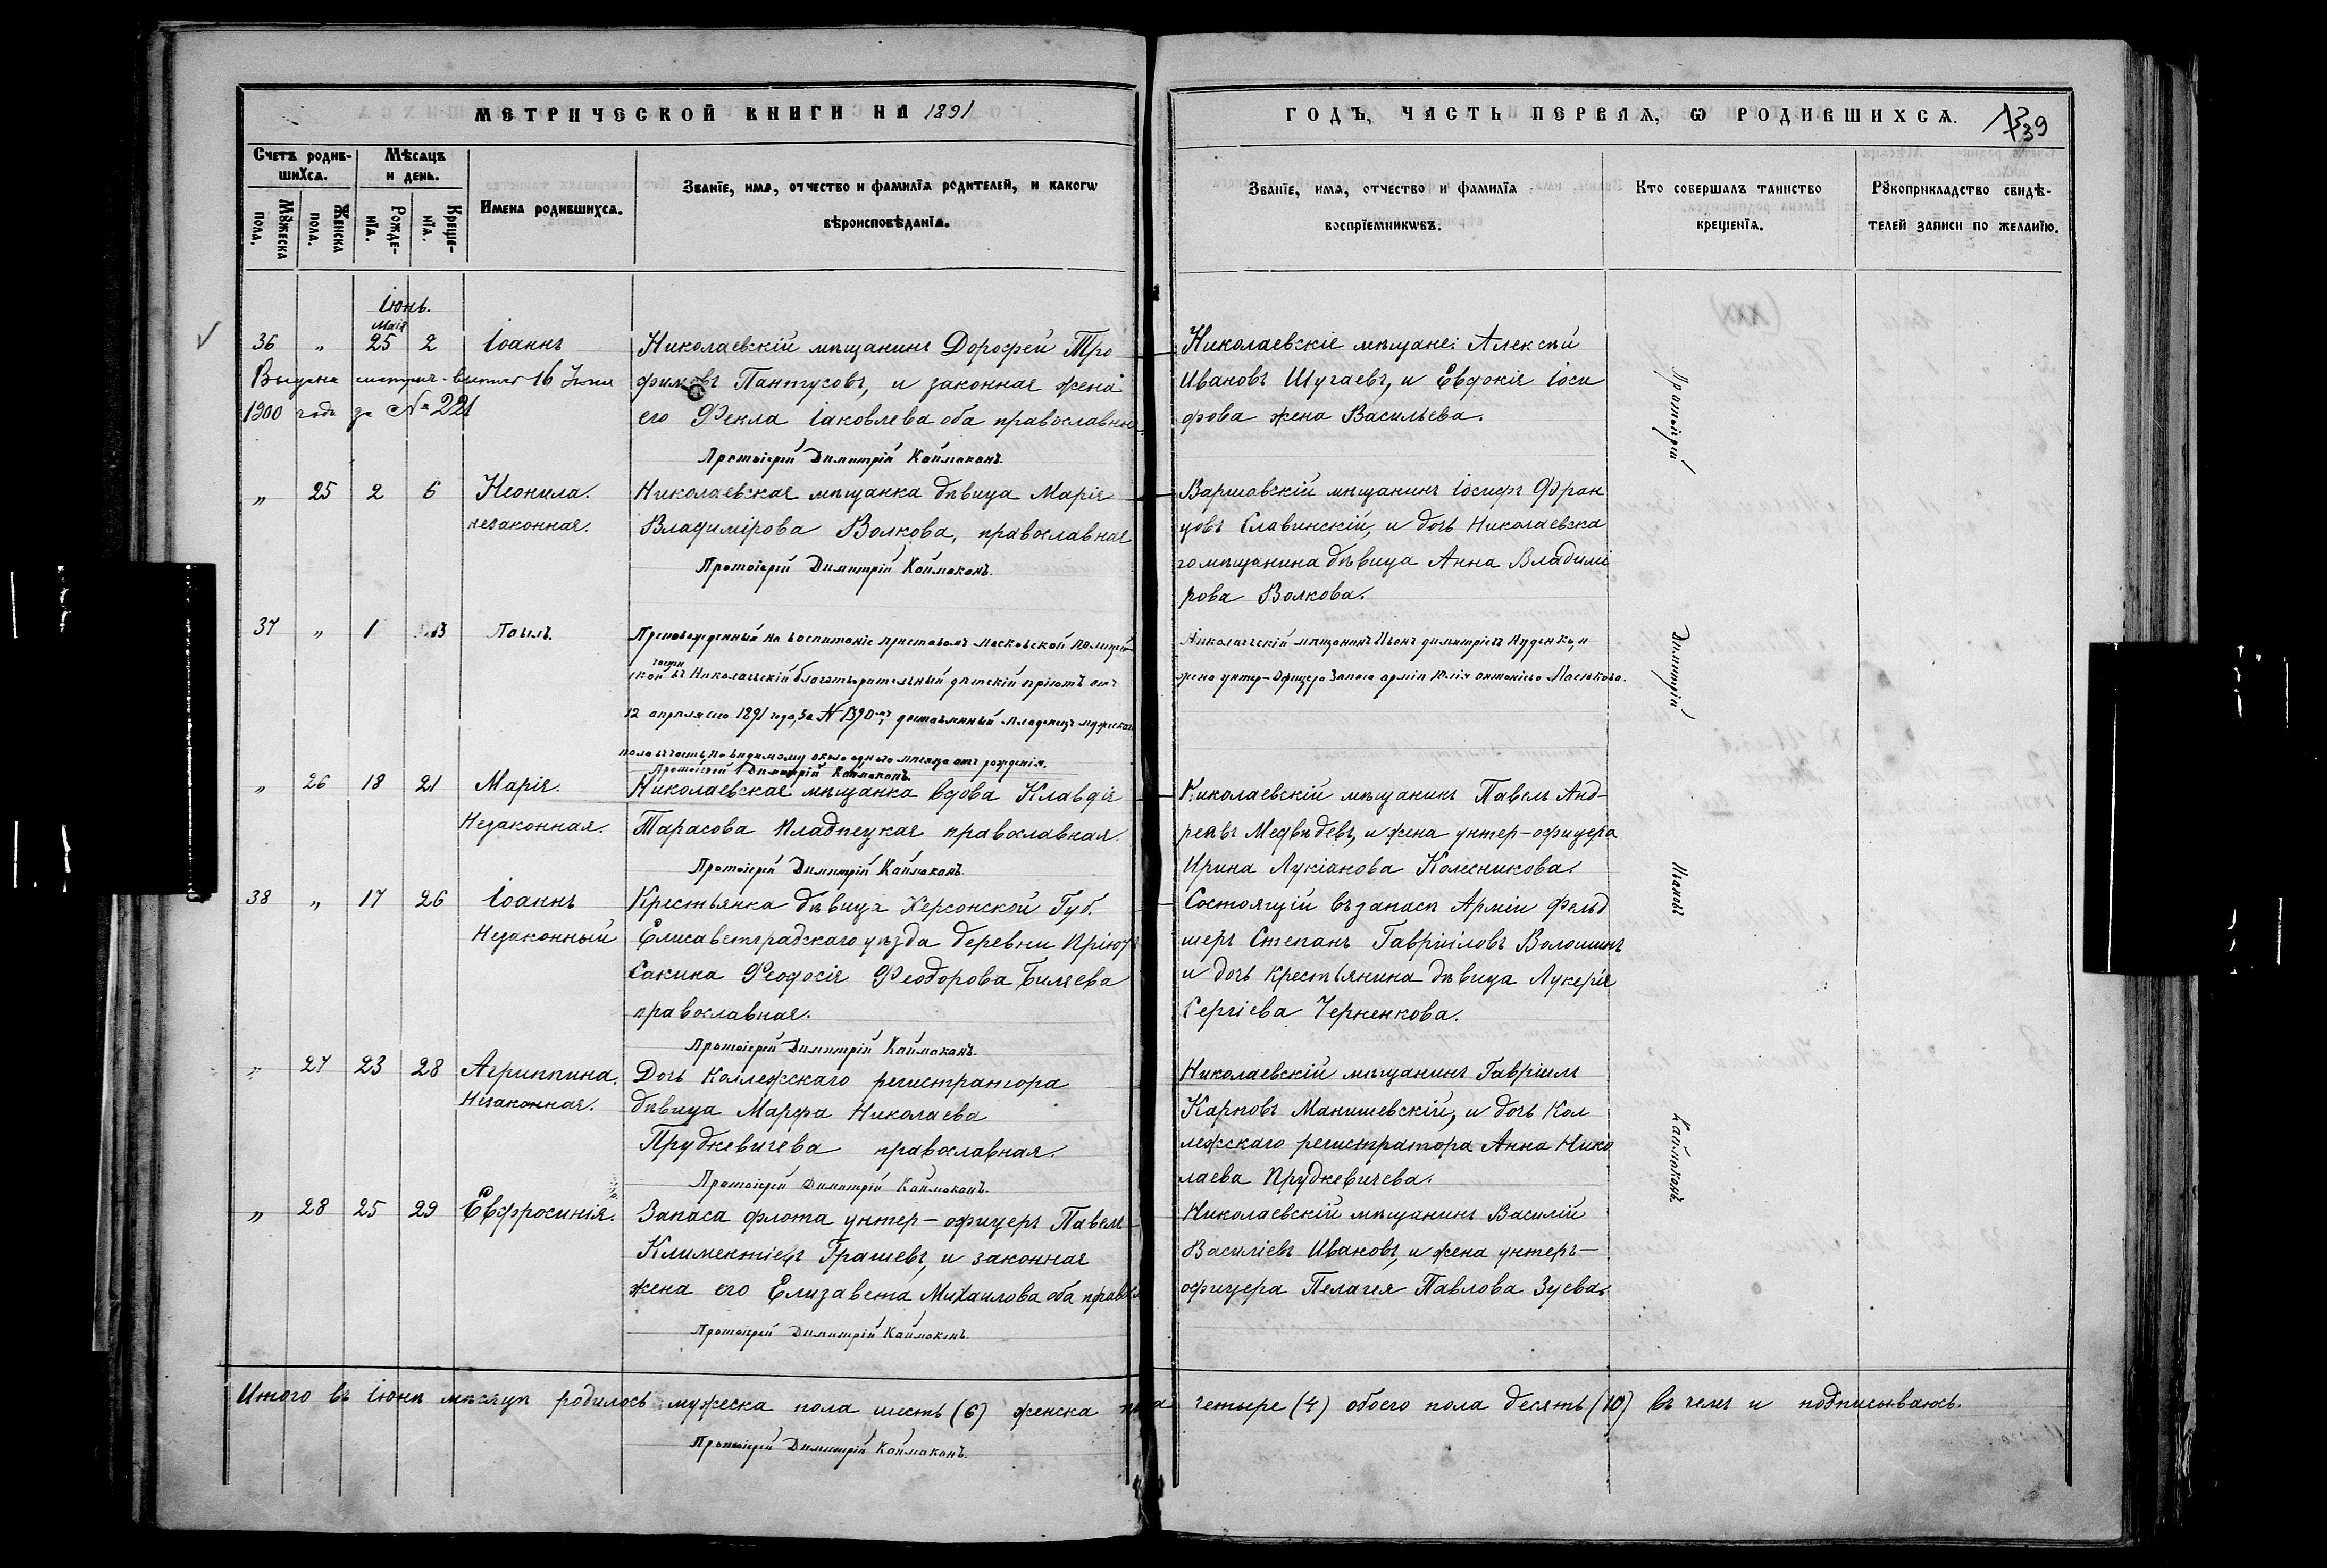 МЕТРИЧЕСКОЙ КНИГИ НА 1891
ГОДЪ, ЧАСТЬ ПЕРВАЯ, Ѡ РОДИВШИХСѦ.
39
Счетъ родив-
шихсѧ.
Мѣсѧцъ
и день.
Имена родившихсѧ.
Званїе, имѧ, отчество и фамилїѧ родителей, и какогѡ
вѣроисповѣданїѧ.
Мꙋжеска
пола.
Женска
пола.
Рожде-
нїѧ.
Креще-
нїѧ.
Званїе, имѧ, отчество и фамилїѧ
воспрїемникѡвъ.
Кто совершалъ таинство
крещенїѧ.
Рꙋкоприкладство свидѣ-
телей записи по желанїю.
Іюнь.
Маія
36 „ 25 2 Іоаннъ Николаевскій мѣщанинъ Дорофей Тро
Выдана метрич. выпись 16 Іюня фимовъ Пантусовъ, и законная жена
1900 года за № 221 его Фекла Іаковлева оба православные
Протоіерей Димитрій Каймаканъ.
Николаевскіе мѣщане: Алексѣй
Ивановъ Шугаевъ, и Евдокія Іоси
фова жена Васильева.
„ 25 2 6 Неонила. Николаевская мѣщанка дѣвица Марія
незаконная. Владимірова Волкова, православная
Протоіерей Димитрій Каймаканъ.
Варшавскій мѣщанинъ Іосифъ Фран
цовъ Славинскій, и дочь Николаевска
го мѣщанина дѣвица Анна Владимі
рова Волкова.
37 „ 1 13 Павелъ. Препровожденный на воспитаніе приставомъ Московской полицей
ской части въ Николаевскій благотворительный дѣтскій пріютъ отъ
12 апрѣля сего 1891 года, за № 1390мъ, доставленный младенецъ мужескаго
пола въ часть, повидимому около одного мѣсяца отъ рожденія.
Протоіерей Димитрій Каймаканъ.
Николаевскій мѣщанинъ Иванъ Димитріевъ Нуденко, и
жена унтер-офицера запаса арміи Юлія Антоніева Маськова.
„ 26 18 21 Марія. Николаевская мѣщанка вдова Клавдія
Незаконная. Тарасова православная
Протоіерей Димитрій Каймаканъ.
Николаевскій мѣщанинъ Павелъ Анд-
реевъ Медвѣдевъ, и жена унтер-офицера
Ирина Лукіанова Колесникова.
38 „ 17 26 Іоаннъ Крестьянка дѣвица Херсонской Губ.
Незаконный Елисаветградскаго уѣзда деревни Пріютъ
Сакина Феодосія Феодорова Биляева
православная.
Протоіерей Димитрій Каймаканъ.
Состоящій въ запасѣ Арміи Фельд
шеръ Степанъ Гавріиловъ Волошинъ
и дочь крестьянина дѣвица Лукерія
Сергіева Черненкова.
„ 27 23 28 Агриппина. Дочь Коллежскаго регистратора
Незаконная. дѣвица Марфа Николаева
Прудкевичева православная.
Протоіерей Димитрій Каймаканъ.
Николаевскій мѣщанинъ Гавріилъ
Карповъ Манишевскій, и дочь Кол
лежскаго регистратора Анна Нико
лаева Прудкевичева.
„ 28 25 29 Евфросинія. Запаса флота унтер-офицеръ Павелъ
Климентіевъ Грашевъ, и законная
жена его Елизавета Михаилова оба правосл
Протоіерей Димитрій Каймаканъ.
Николаевскій мѣщанинъ Василій
Василіевъ Ивановъ, и жена унтеръ-
офицера Пелагея Павлова Зуева.
Протоіерей Димитрій Іоановъ Каймаканъ
Итого въ Іюнѣ мѣсяцѣ родилось мужеска пола шесть (6) женска пола четыре (4) обоего пола десять (10) въ чемъ и подписываюсь.
Протоіерей Димитрій Каймаканъ.